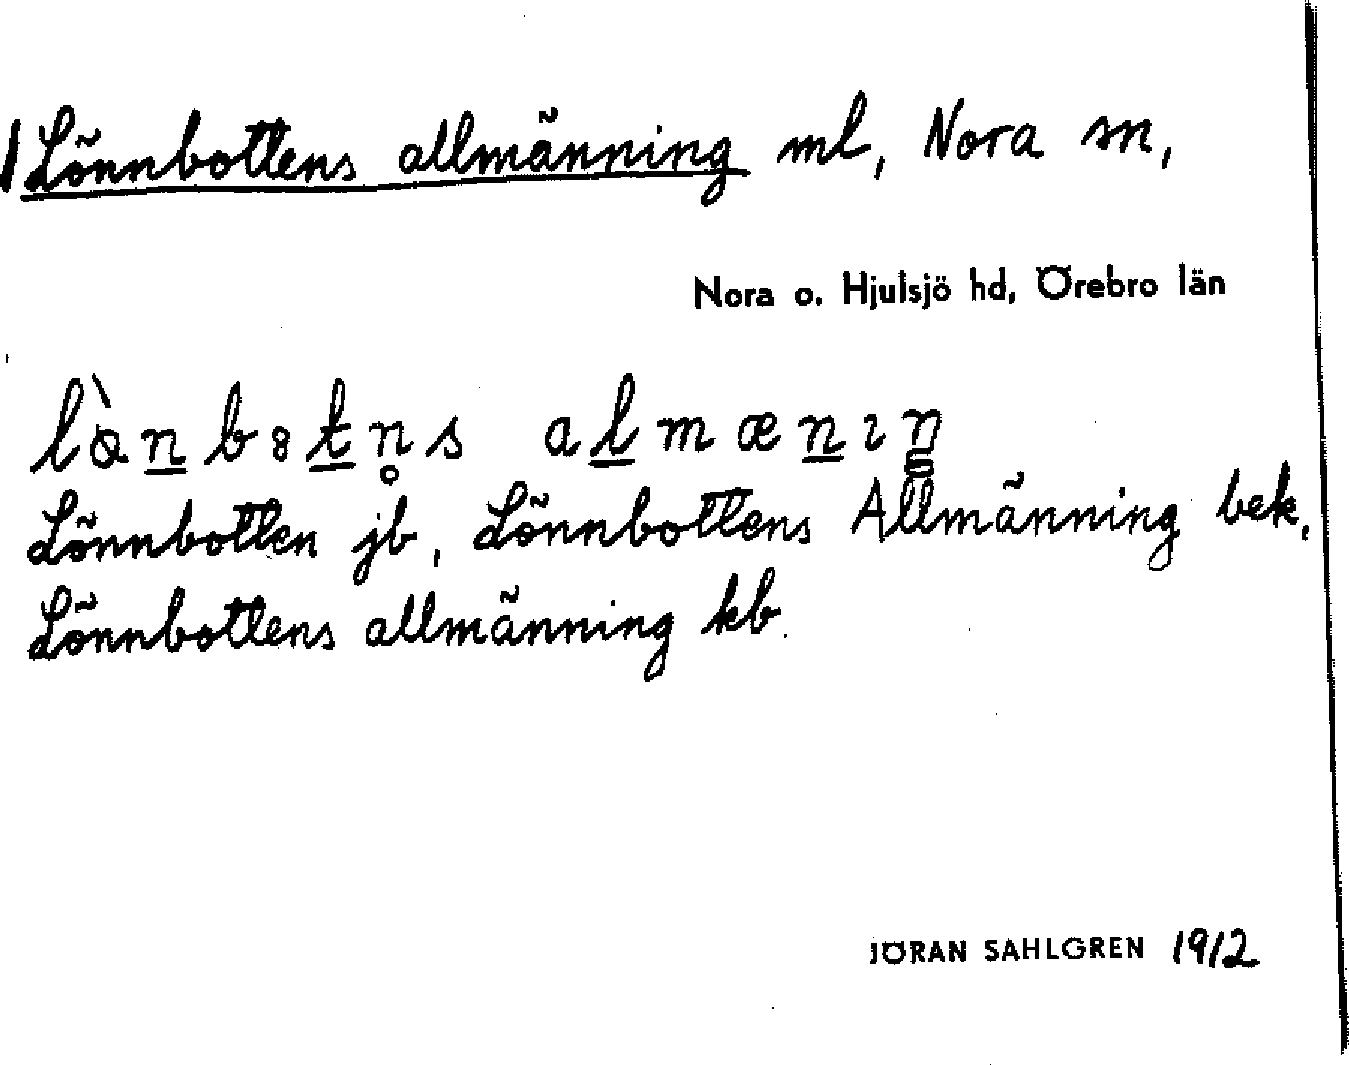 Lönnbottens allmänning ml, Nora sn,
Nora o. Hjulsjö hd, Örebro län
lòn̲bot̲n̥s al̲mæn̲ıŋ
Lönnbotten jb, Lönnbottens Allmänning bek,
Lönnbottens allmänning kb.
JÖRAN SAHLGREN 1912